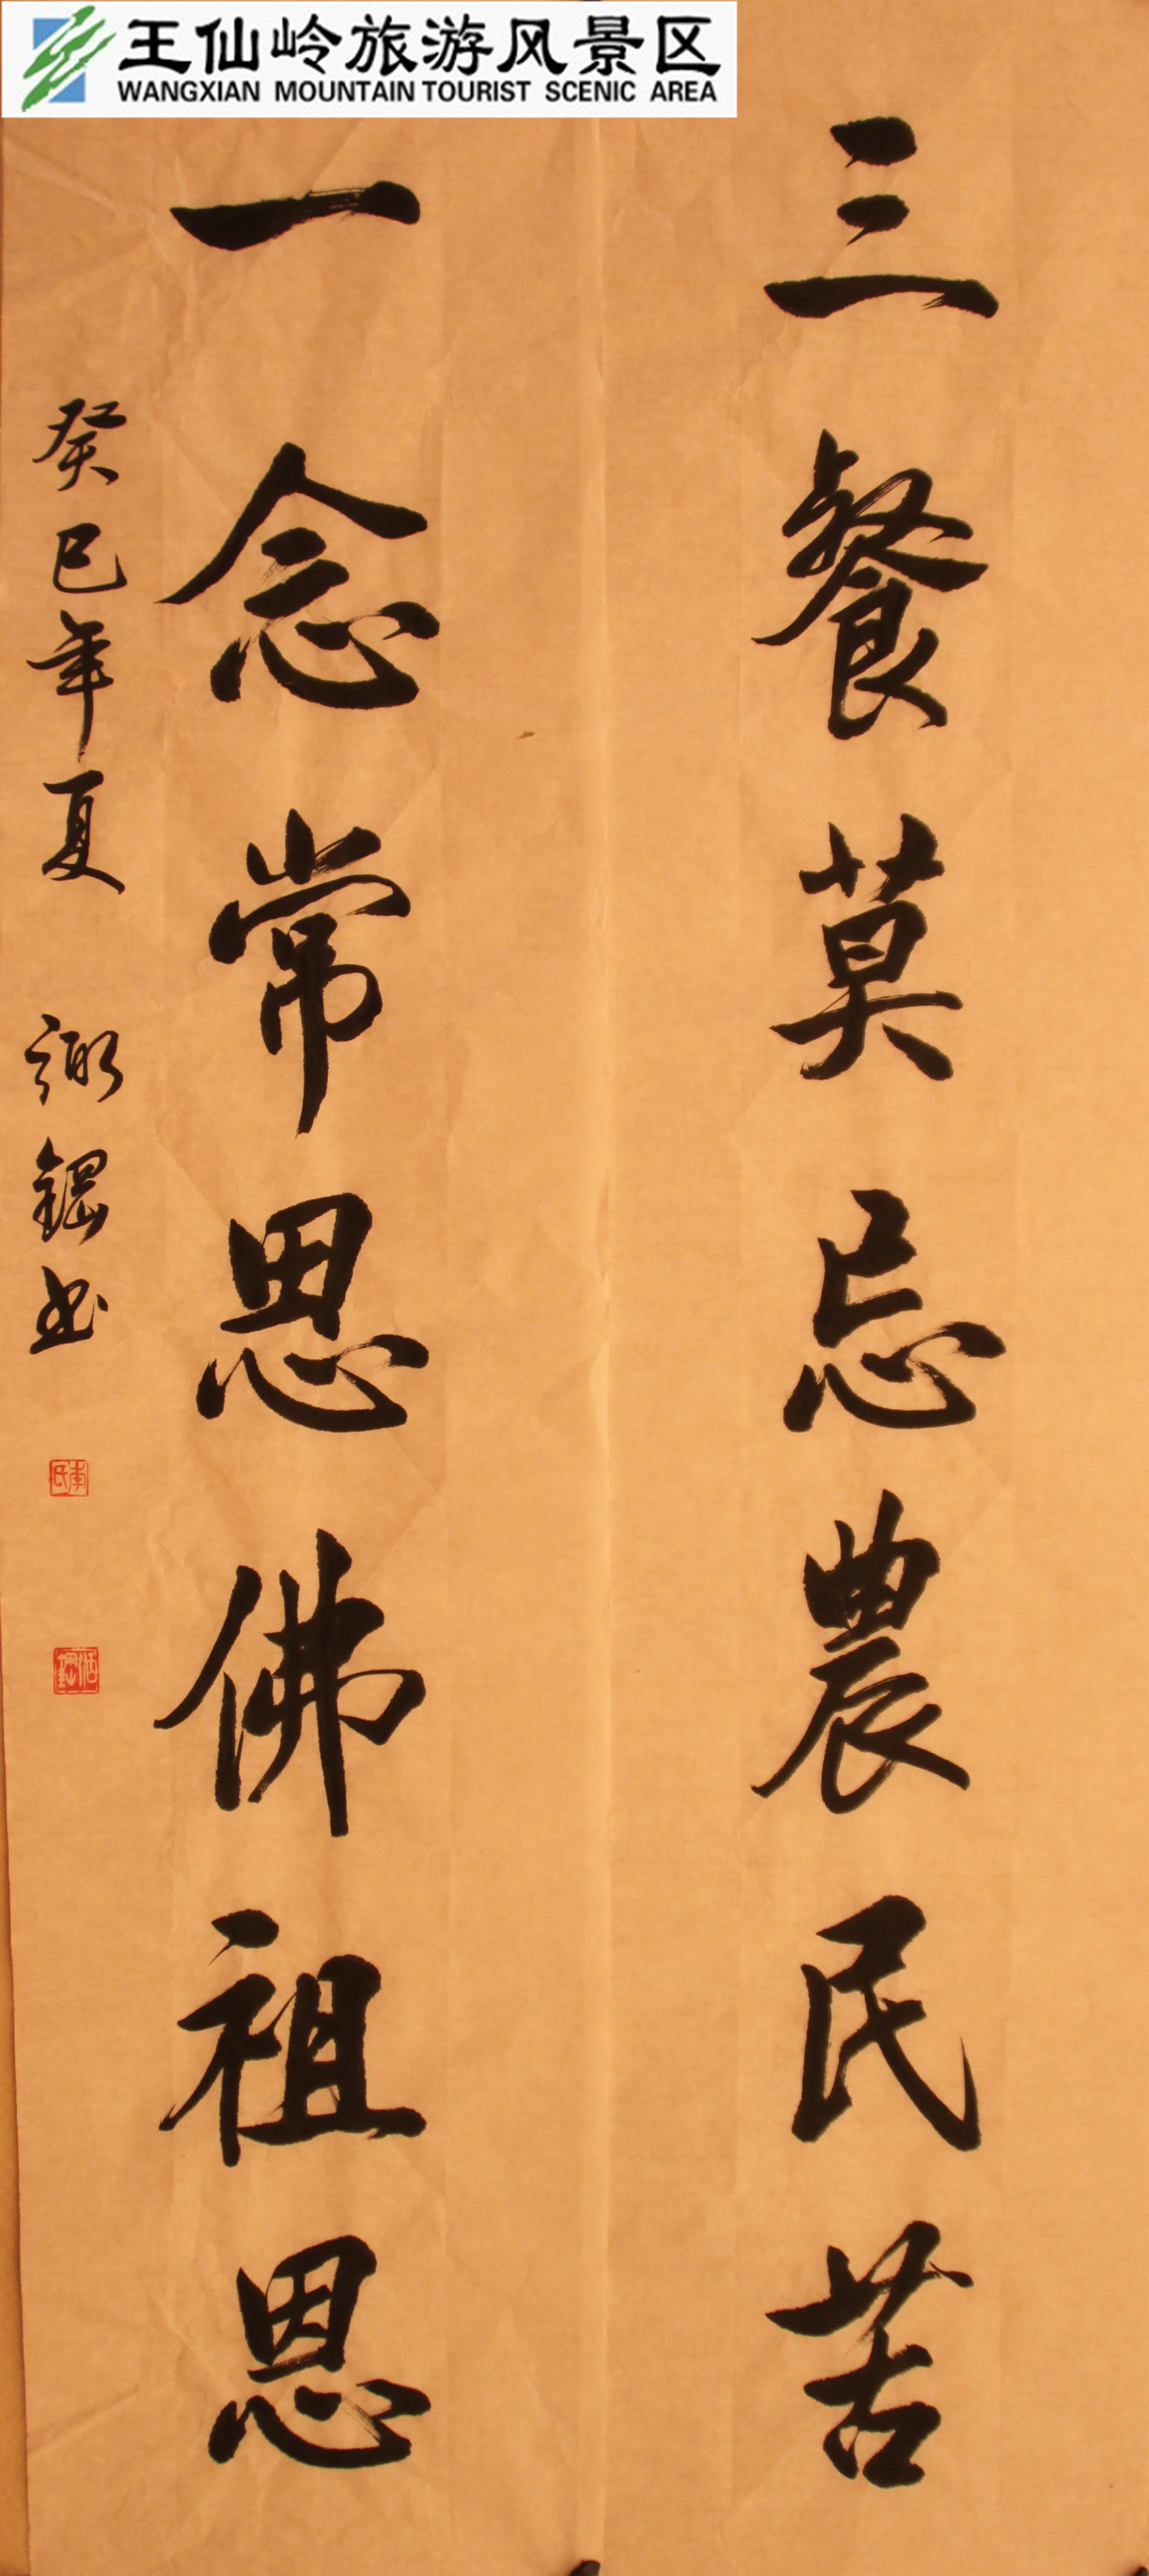 王仙岭旅游风景区
WANGXIAN MOUNTAIN TOURIST SCENIC AREA
三餐莫忘農民苦
一念常思佛祖恩
癸巳年夏 鋼书